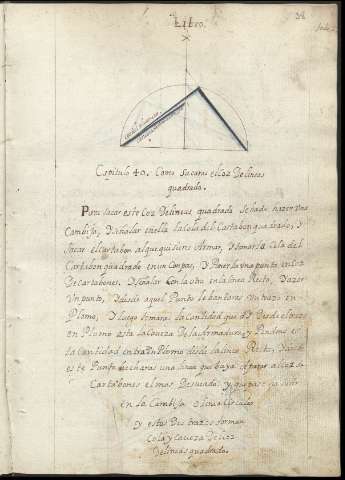 Libro.
38
Capitulo 40. Como sacaras el coz De lineas
quadrado.
Para sacar este Coz De lineas quadrado se ha de hazer una
Cambija, Y señalar en ella la cola del Cartabon quadrado, y
sacar el cartabon al que quisieres Armar, y tomar la Cola del
Cartabon quadrado en un Compas, Y Poner la una punta en el coz
De cartabones. Y señalar Con la otra en la linea Recta, Y azer
Un punto, Y desde aquel Punto levantaras un trazo en
Plomo, Y luego tomaras la Cantidad que ay Desde el trazo
en Plomo asta la Caveza De la Armadura y Pondras es
ta Cantidad en trazo en Plomo desde la linea Recta, Y desde
este Punto echaras una linea que baya a parar al coz de
Cartabones el mas Desviado, y que pase
en la Cambija o linea Circular
y estos Dos trazos forman
Cola y Caveza De Coz
De lineas quadrado.